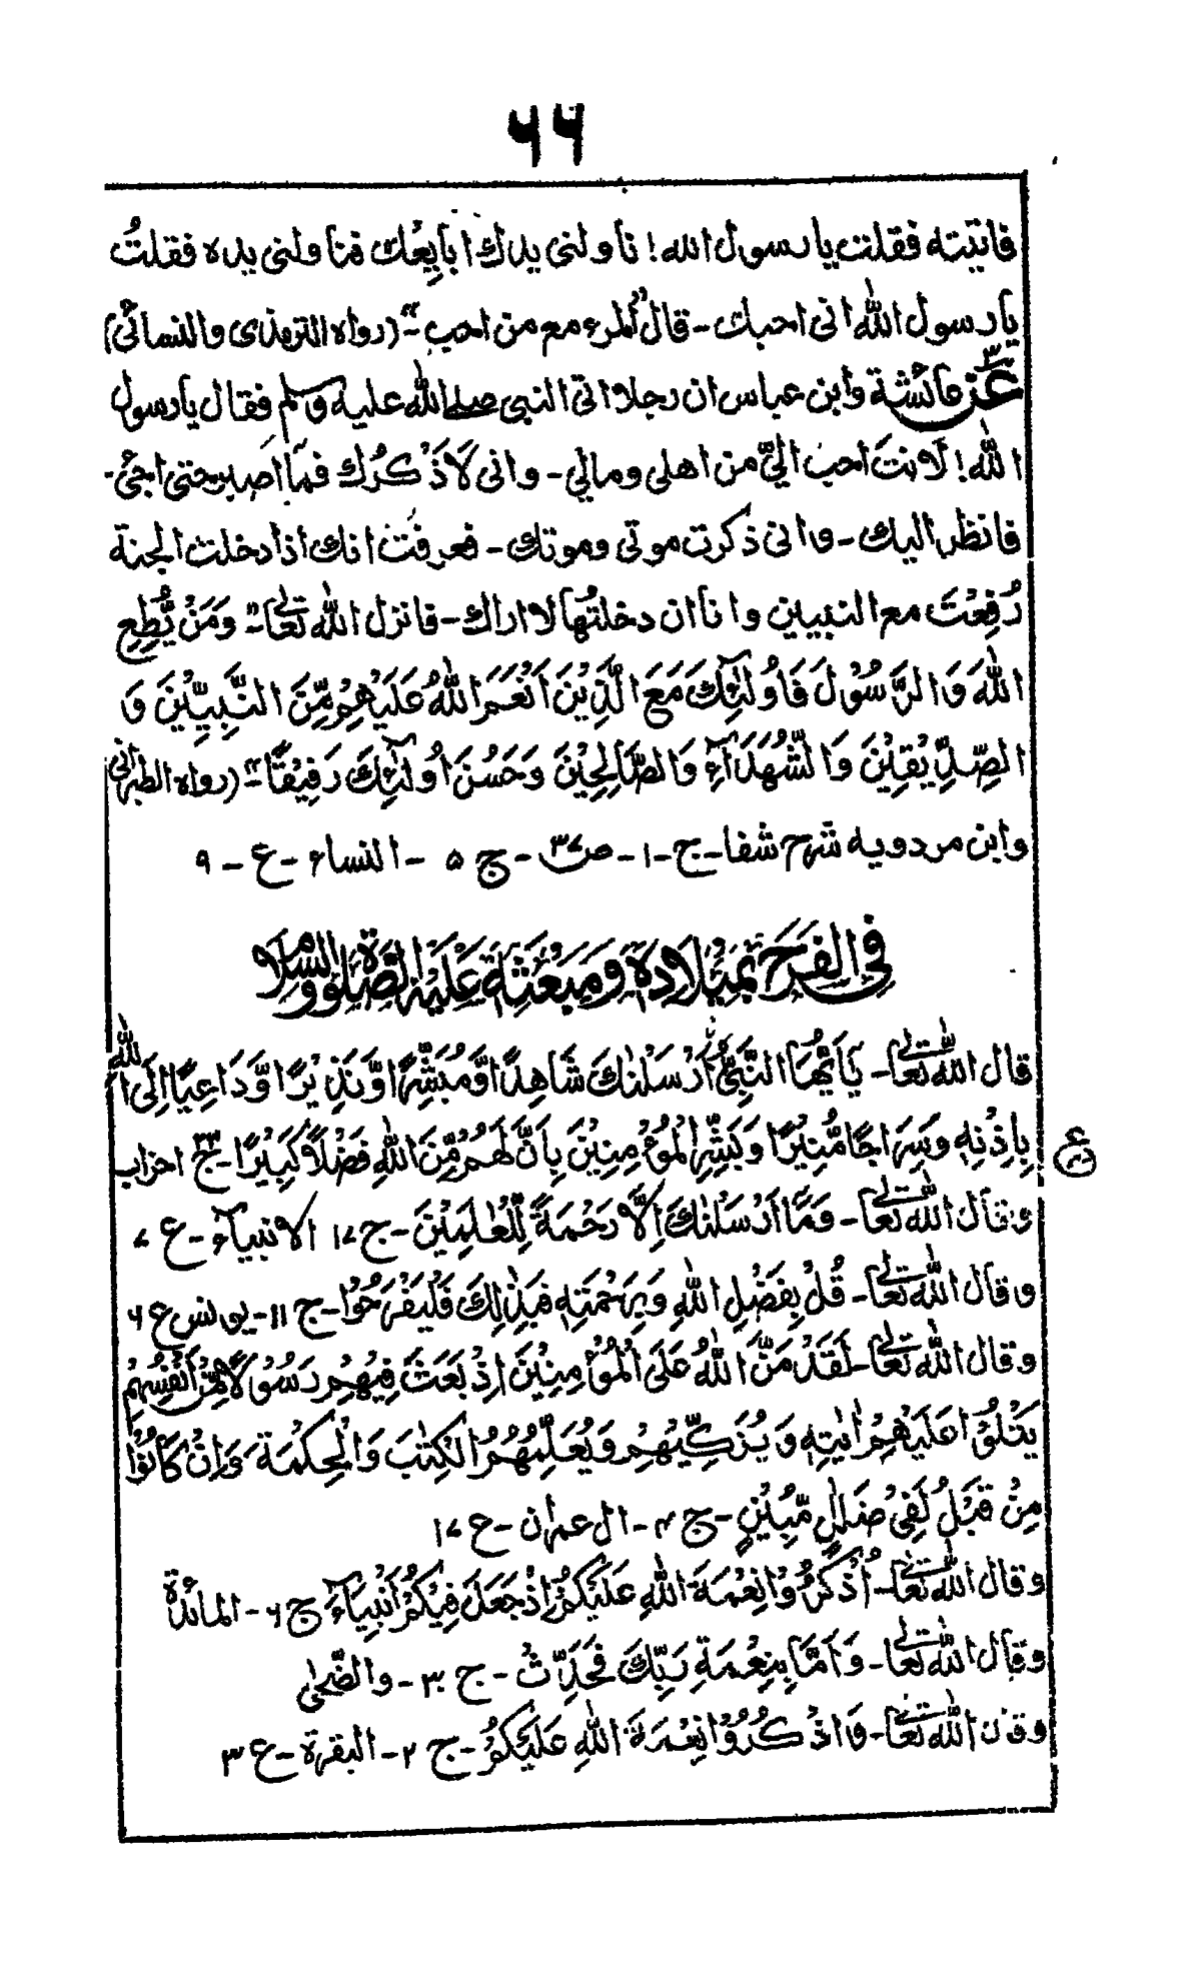 ۶۶
فاتيته فقلت يا رسول الله! ناولنى يدك ابايِعُك فناولنى يده فقلتُ
يا رسول الله انى احبك - قال "المرء مع من احب" - (رواه الترمذى والنسائى)
عن عائشة وابن عباس ان رجلا اتى النبى صلى الله عليه وسلم فقال يا رسول
الله! لَانت احب اليَّ من اهلى ومالي - وانى لَاَذْكُرُك فما اصبر حتى اجئ -
فانظر اليك - وانى ذكرت موتى وموتك - فعرفت انك اذا دخلت الجنة
رُفِعْتَ مع النبيين وانا ان دخلتُها لا اراك - فانزل الله تعالى - "وَمَنْ يُّطِعِ
اللهَ وَالرَّسُوْلَ فَاُولٰٓئِكَ مَعَ الَّذِيْنَ اَنْعَمَ اللهُ عَلَيْهِمْ مِّنَ النَّبِيّٖنَ وَ
الصِّدِّيْقِيْنَ وَالشُّهَدَآءِ وَالصّٰلِحِيْنَ وَحَسُنَ اُولٰٓئِكَ رَفِيْقًا" - (رواه الطبرانى
وابن مردويه شرح شفا - ج - ۱ - ص ۳۷ - ج ۵ - النساء - ع - ۹
فِى الفَرَحِ بِمِيْلَادِهٖ وَمَبْعَثِهٖ عَلَيْهِ الصَّلٰوةُ وَالسَّلَام
قال الله تعالى - يٰٓاَيُّهَا النَّبِيُّ اِنَّآ اَرْسَلْنٰكَ شَاهِدًا وَّمُبَشِّرًا وَّنَذِيْرًا وَّدَاعِيًا اِلَى الله
بِاِذْنِهٖ وَسِرَاجًا مُّنِيْرًا وَبَشِّرِ الْمُؤْمِنِيْنَ بِاَنَّ لَهُمْ مِّنَ اللهِ فَضْلًا كَبِيْرًا - ج ۲۲ احزاب
وقال الله تعالى - وَمَآ اَرْسَلْنٰكَ اِلَّا رَحْمَةً لِّلْعٰلَمِيْنَ - ج ۱۷ الانبياء - ع ۷
وقال الله تعالى - قُلْ بِفَضْلِ اللهِ وَبِرَحْمَتِهٖ فَبِذٰلِكَ فَلْيَفْرَحُوْا - ج ۱۱ - يونس ع ۶
وقال الله تعالى - لَقَدْ مَنَّ اللهُ عَلَى الْمُؤْمِنِيْنَ اِذْ بَعَثَ فِيْهِمْ رَسُوْلًا مِّنْ اَنْفُسِهِمْ
يَتْلُوْا عَلَيْهِمْ اٰيٰتِهٖ وَيُزَكِّيْهِمْ وَيُعَلِّمُهُمُ الْكِتٰبَ وَالْحِكْمَةَ وَاِنْ كَانُوْا
مِنْ قَبْلُ لَفِىْ ضَلٰلٍ مُّبِيْنٍ - ج ۴ - ال عمران - ع ۱۷
وقال الله تعالى - اُذْكُرُوْا نِعْمَةَ اللهِ عَلَيْكُمْ اِذْ جَعَلَ فِيْكُمْ اَنْبِيَآءَ ج ۶ - المائدة
وقال الله تعالى - وَاَمَّا بِنِعْمَةِ رَبِّكَ فَحَدِّثْ - ج ۳۰ - والضحى
وقال الله تعالى - وَاذْكُرُوْا نِعْمَةَ اللهِ عَلَيْكُمْ - ج ۲ - البقرة - ع ۳